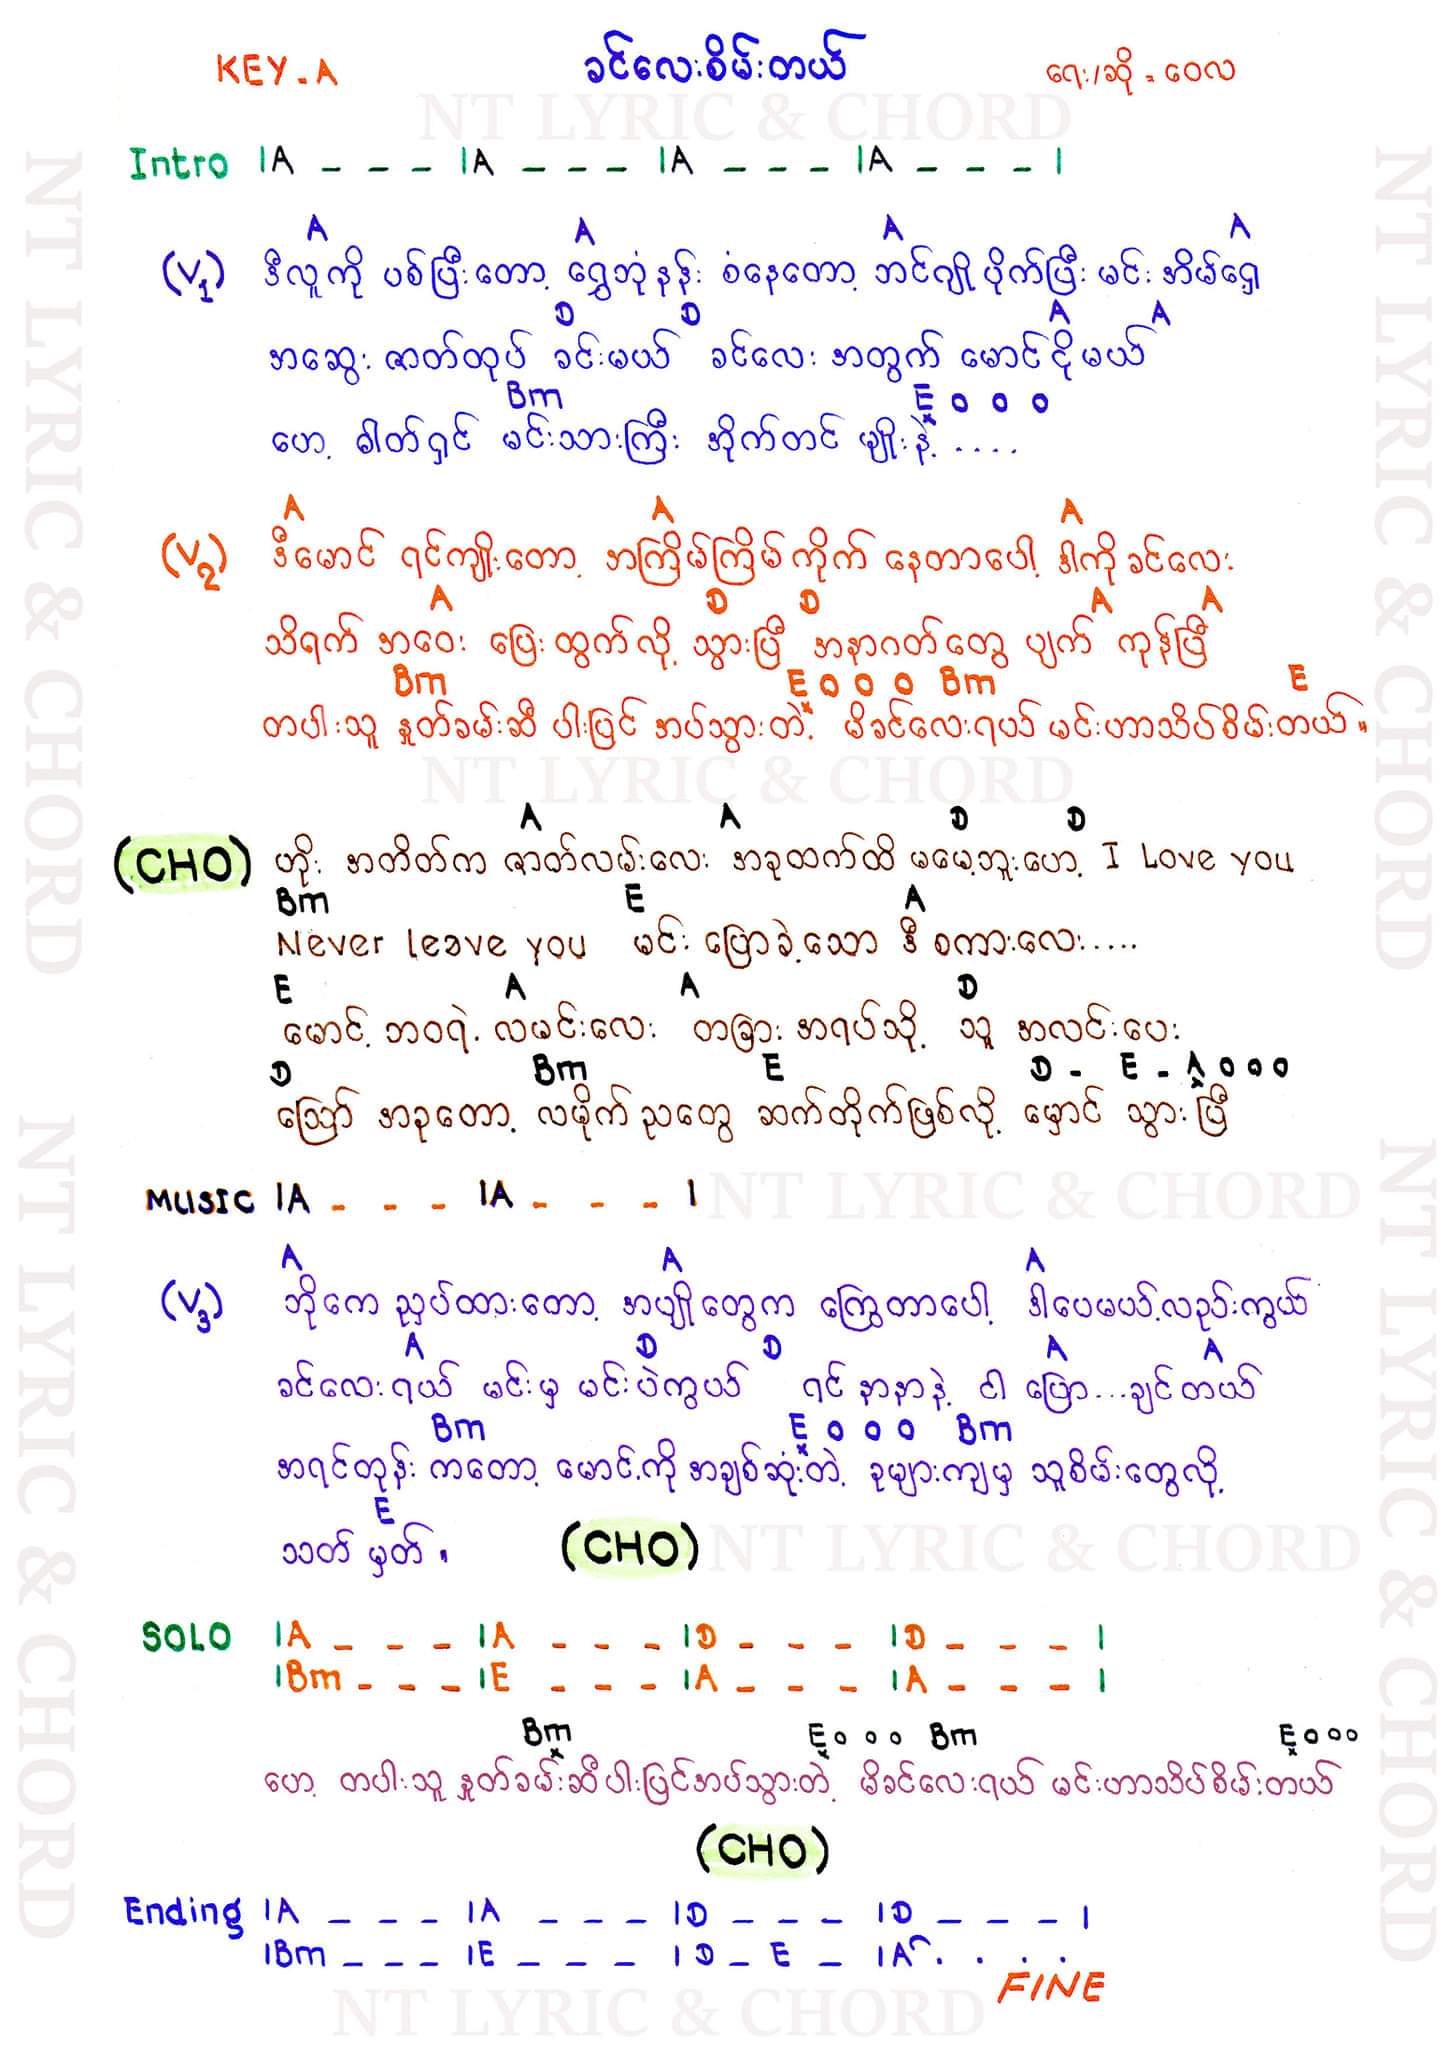 KEY - A
ခင်လေးစိမ်းတယ်
ရေး/ဆို = ဝေလ
NT LYRIC & CHORD
Intro |A _ _ _ |A _ _ _ |A _ _ _ |A _ _ _ |
A A A A
(V1) ဒီလူကို ပစ်ပြီးတော့ ရွှေဘုံနန်း စံနေတော့ ဘင်ဂျိုပိုက်ပြီး မင်းအိမ်ရှေ့
D D A A
အဆွေးဇာတ်ထုပ် ခင်းမယ် ခင်လေးအတွက် မောင်ငိုမယ်
Bm E o o o
ဟေ့ ဓါတ်ရှင် မင်းသားကြီး အိုက်တင်မျိုးနဲ့ ....
A A A
(V2) ဒီမောင် ရင်ကျိုးတော့ အကြိမ်ကြိမ်ကိုက် နေတာပေါ့ ဒါကိုခင်လေး
A D D A A
သိရက် အဝေး ပြေးထွက်လို့ သွားပြီ အနာဂတ်တွေ ပျက် ကုန်ပြီ
Bm E o o o Bm E
တပါးသူ နှုတ်ခမ်းဆီ ပါးပြင် အပ်သွားတဲ့ မိခင်လေးရယ် မင်းဟာသိပ်စိမ်းတယ်။
NT LYRIC & CHORD
A A D D
(CHO) ဟိုး အတိတ်က ဇာတ်လမ်းလေး အခုထက်ထိ မမေ့ဘူးဟေ့ I Love you
Bm E A
Never leave you မင်း ပြောခဲ့သော ဒီ စကားလေး.....
E A A D
မောင့် ဘဝရဲ့ လမင်းလေး တခြား အရပ်သို့ သူ အလင်းပေး
D Bm E D - E - A o o o
သြော် အခုတော့ လမိုက်ညတွေ ဆက်တိုက်ဖြစ်လို့ မှောင် သွားပြီ
MUSIC |A - - - |A - - - |
NT LYRIC & CHORD
A A A
(V3) ဘိုကေ ညှပ်ထားတော့ အပျိုတွေက ကြွေတာပေါ့ ဒါပေမယ့်လည်းကွယ်
A D D A A
ခင်လေးရယ် မင်းမှ မင်းပဲကွယ် ရင်နာနာနဲ့ ငါ ပြော...ချင်တယ်
Bm E o o o Bm
အရင်တုန်း ကတော့ မောင့်ကို အချစ်ဆုံးတဲ့ ခုများကျမှ သူစိမ်းတွေလို့
E
သတ်မှတ်။ (CHO)
NT LYRIC & CHORD
SOLO |A _ _ _ |A _ _ _ |D _ _ _ |D _ _ _ |
|Bm _ _ _ |E _ _ _ |A _ _ _ |A _ _ _ |
Bm E o o o Bm E o o o
ဟေ့ တပါးသူ နှုတ်ခမ်းဆီပါးပြင်အပ်သွားတဲ့ မိခင်လေးရယ် မင်းဟာသိပ်စိမ်းတယ်
(CHO)
Ending |A _ _ _ |A _ _ _ |D _ _ _ |D _ _ _ |
|Bm _ _ _ |E _ _ _ |D _ E _ |A . . . .
FINE
NT LYRIC & CHORD
NT LYRIC & CHORD
NT LYRIC & CHORD
NT LYRIC & CHORD
NT LYRIC & CHORD